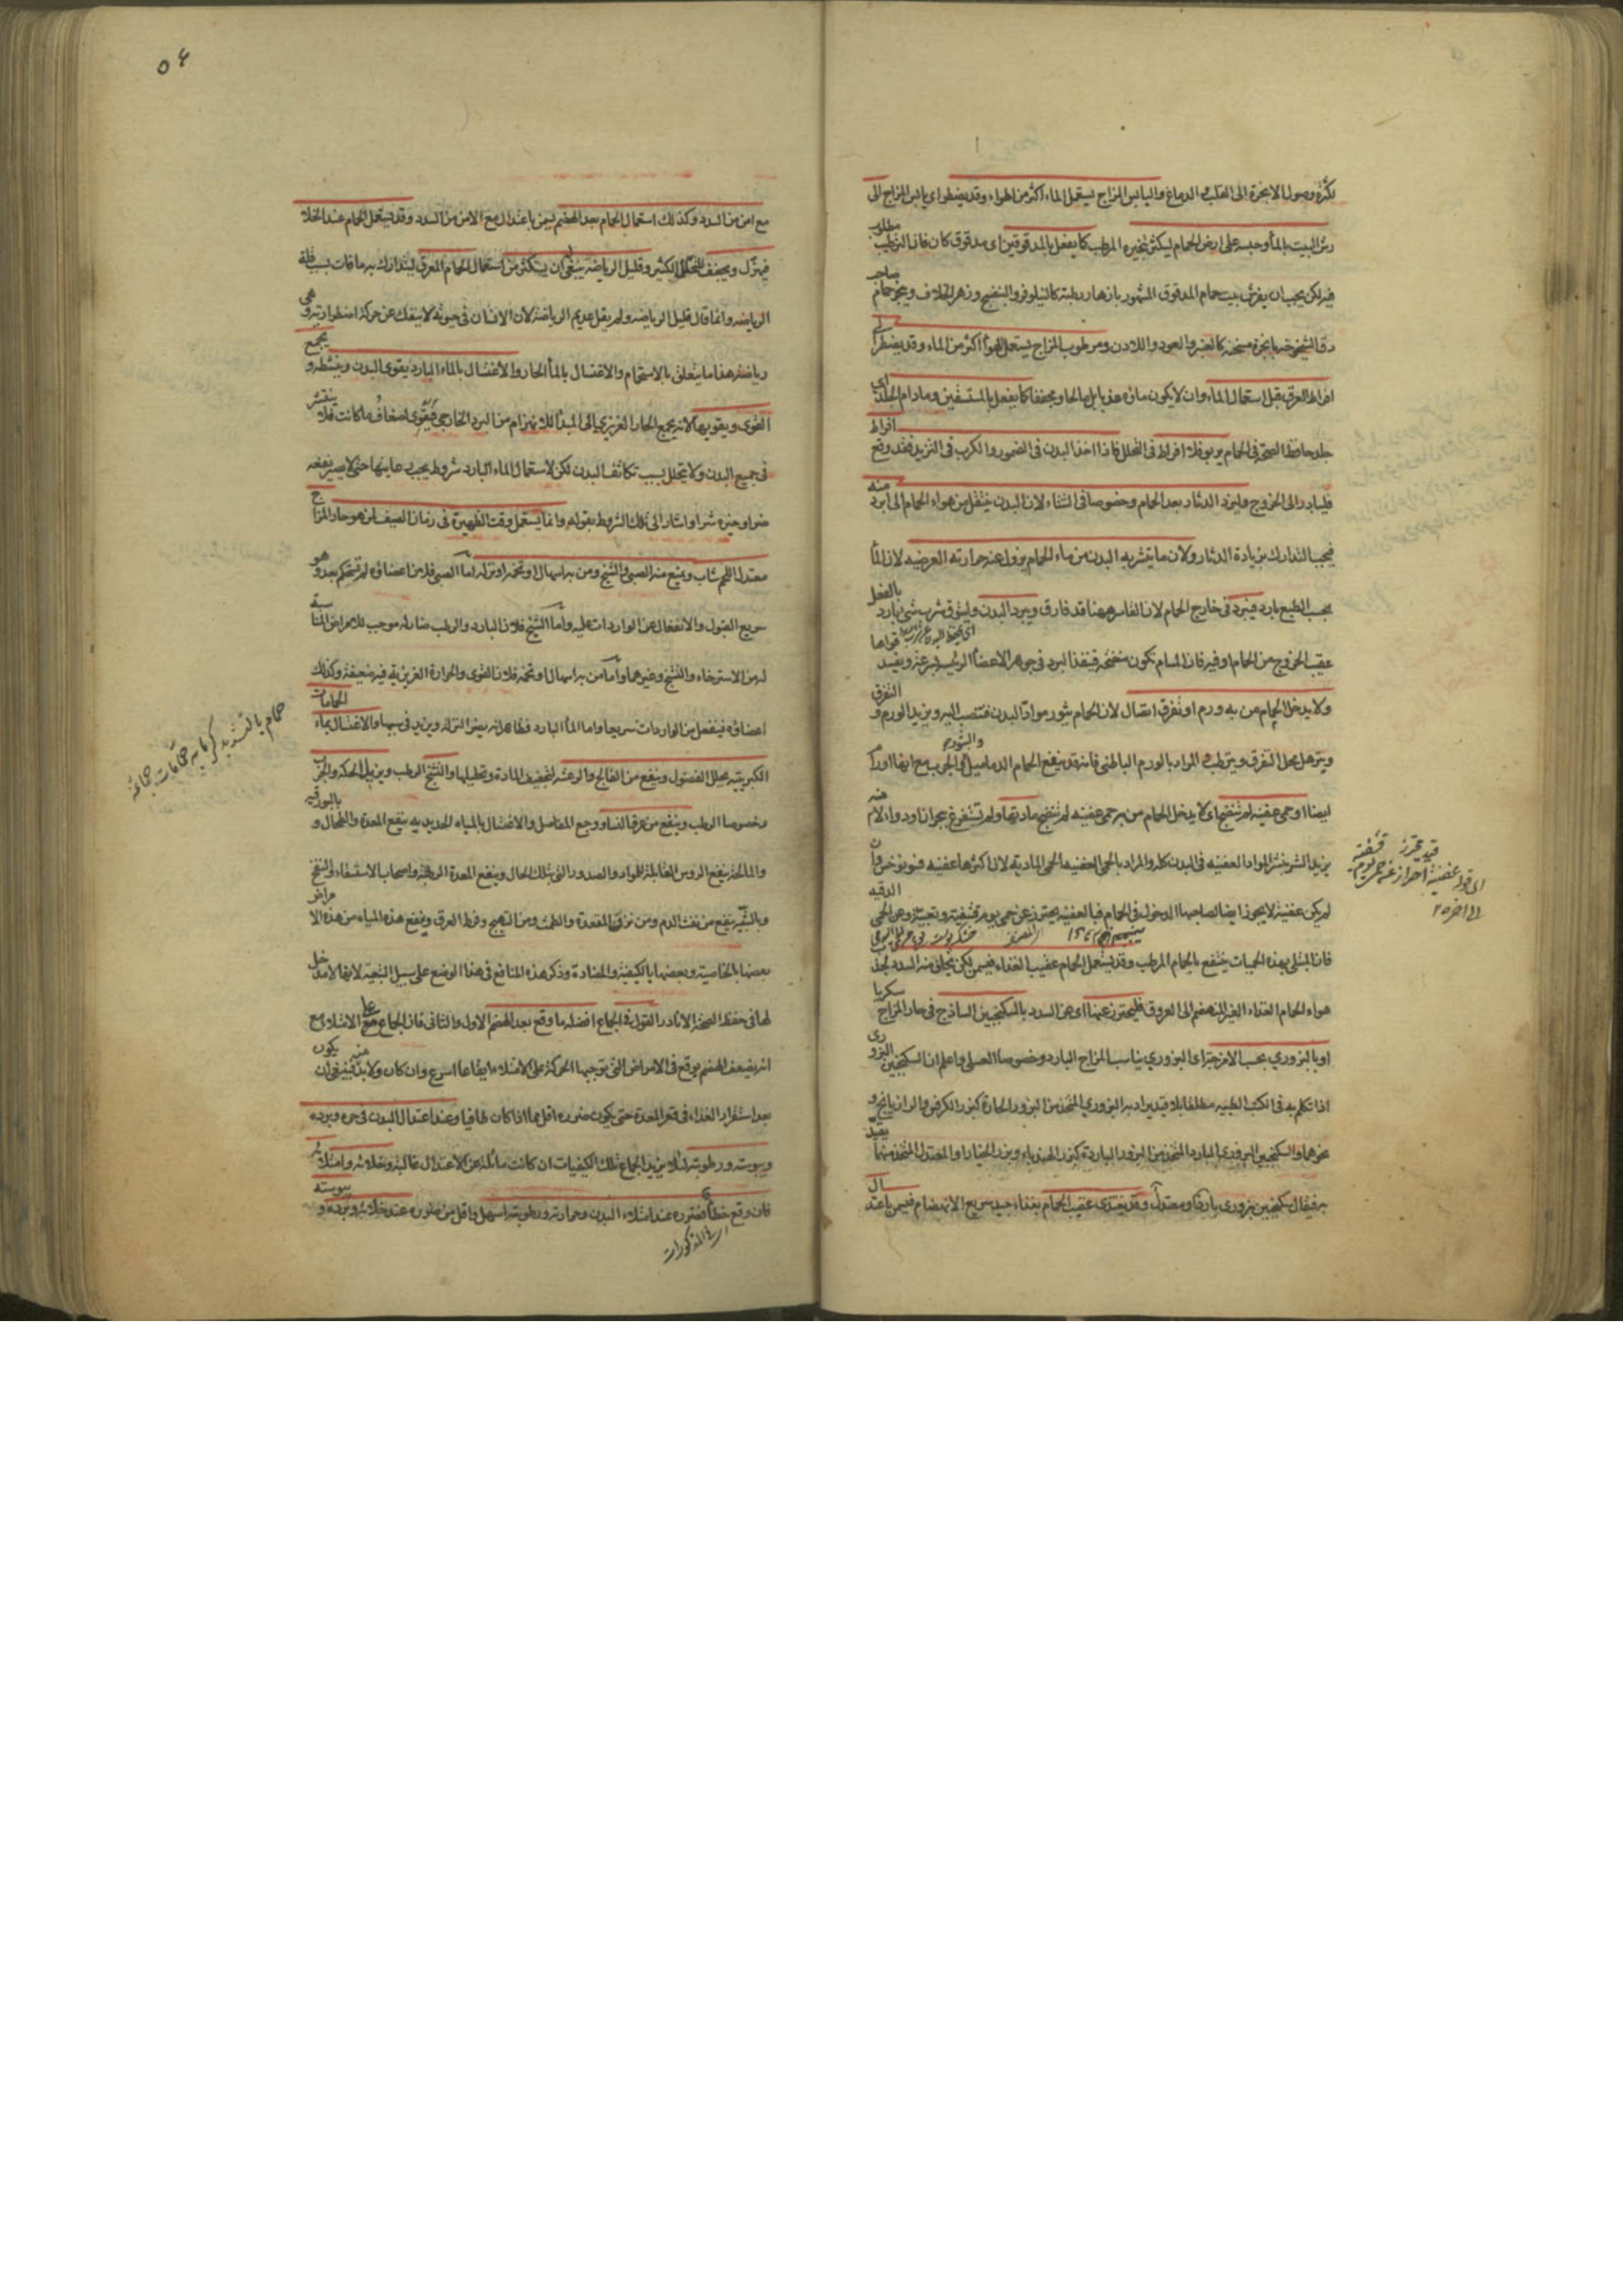 لكثرة وصول الابخرة الى القلب والدماغ واليابس المزاج يستعمل الماء اكثر من الهواء وقد يضطر اى يابس المزاج الى
رش البيت بالماء وحبسه على ارض الحمام ليكثر بخيره المرطب كما يفعل بالمدقوقين اى مدقوق كان فان الترطيب
مطلوب
فيه لكن يجب ان يفرش بيت حمام المدقوق المشهور بازهار رطبة كالنيلوفر والبنفسج وزهر الخلاف ويبخر حمام
صاحب
دق الشيخوخة بابخرة مسخنة كالعنبر والعود واللادن ومرطوب المزاج يستعمل الهواء اكثر من الماء وقد يضطر
الى
افراط العرق قبل استعمال الماء وان لا يكون مائه عذبا بل مالحا ومجففا كما يفعل بالمستسقين ومادام الجلد
اى
جلد حافظ الصحة فى الحمام يربو فلا افراط فى التحلل فاذا اخذ البدن فى الضمور والكرب فى التزيد فقد وقع
افراط
فليبادر الى الخروج وليزد الدثار بعد الحمام وخصوصا فى الشتاء لان البدن ينتقل من هواء الحمام الى ابرد
منه
فيجب التدارك بزيادة الدثار ولان ما يتشربه البدن من ماء الحمام يزول عنه حرارته العرضيه لان الماء
بحسب الطبع بارد فيبرد فى خارج الحمام لان القاسر ههنا قد فارق ويبرد البدن وليتوق شرب شئ بارد
بالفعل
عقيب الخروج من الحمام او فيه فان المسام تكون منفتحة فينفذ البرد فى جوهر الاعضاء الرئيسة بسرعة ويفسد
قواها
ولا يدخل الحمام من به ورم او تفرق اتصال لان الحمام يثور مواد البدن فتنصب اليه ويزيد الورم و
التفرق
ويترهل محل التفرق ويترطب والمراد بالورم الباطنى فانه قد ينفع الحمام الدماميل والجرب مع انها اورام
والبثور
ايضا او حمى عفنية لم تنضج اى لا يدخل الحمام من به حمى عفنيه لم تنضج مادتها ولم تستفرغ بحرانا ودواء لان
منه
يزيد الشر بنشر المواد العفنيه فى البدن كله والمراد بالحمى العفنيه الحمى المادية لان اكثرها عفنيه
لم يكن عفنية لا يجوز ايضا لصاحبها الدخول فى الحمام فبالعفنيه يحترز عن حمى يوم قشفية وتعبية وعن الحمى
الدقيه
فان المبتلى بهذه الحميات ينتفع بالحمام المرطب وقد يستعمل الحمام عقيب الغذاء فيسمن لكن يخاف منه السدد لجذب
هواء الحمام الغذاء الغير المنهضم الى العروق فليحترز عنها اى عن السدد بالسكنجبين الساذج فى حار المزاج
سكريا
او بالبزورى بحسب الامزجة اى البزورى يناسب المزاج البارد وخصوصا العسلى واعلم ان السكنجبين
البزورى
اذا تكلم به فى الكتب الطبيه مطلقا بلا قيد يراد به البزورى المتخذ من البزور الحارة كبزر الكرفس والرازيانج و
نحوهما والسكنجبين البزورى البارد المتخذ من البزور الباردة كبزر الهندباء وبزر الخيار والمعتدل المتخذ منهما
يقيد
به فيقال سكنجبين بزورى بارد او معتدل وقد يغتذى عقيب الحمام بغذاء جيد سريع الانهضام فيسمن باعتدال
قيد محترز قشفية
اى قوله عفنية احتراز عن حمى يوم
الى اخره
٥٤
مع امن من السدد وكذلك استعمال الحمام بعد الهضم يسمن باعتدال مع الامن من السدد وقد يستعمل الحمام عند الخلاء
فيهزل ويجفف للتحلل الكثير وقليل الرياضة ينبغى ان يستكثر من استعمال الحمام المعرق ليتدارك به ما فات بسبب قلة
الرياضه وانما قال قليل الرياضه ولم يقل عديم الرياضة لان الانسان فى حيوته لا ينفك عن حركة اضطرارية و
هى
رياضة هذا ما يتعلق بالاستحمام والاغتسال بالماء الحار والاغتسال بالماء البارد يقوى البدن وينشطه و
يجمع
القوى ويقويها لانه يجمع الحار الغريزى الى المبدأ للانهزام من البرد الخارجى فيقوى اضعاف ما كانت فلا
ينتشر
فى جميع البدن ولا تحلل بسبب تكاثف البدن لكن لاستعمال الماء البارد شروط يجب رعايتها حتى لا يصير نفعه
ضرا وخيره شرا واشار الى تلك الشروط بقوله وانما يستعمل وقت الظهيرة فى زمان الصيف لمن هو حار المزاج
معتدل اللحم شاب ويمنع منه الصبى والشيخ ومن به اسهال او تخمة او نزلة اما الصبى فلان اعضاؤه لم تستحكم بعد و
هو
سريع القبول والانفعال عن الواردات عليه واما الشيخ فلان البارد والرطب ضار له موجب للامراض المناسبة
له من الاسترخاء والتشنج وغيرهما واما من به اسهال او تخمة فلان القوى والحرارة الغريزية فيه ضعيفة وكذلك
اعضاؤه فينفعل من الواردات سريعا واما الماء البارد فظاهر انه يضر النزلة ويزيد فى سببها والاغتسال بماء
الحمامات
الكبريتية يحلل الفضول وينفع من الفالج والرعشه لتجفيف المادة وتحليلها والتشنج الرطب ويزيل الحكة والجرب
وخصوصا الرطب وينفع من عرق النسا ووجع المفاصل والاغتسال بالمياه الحديديه ينفع المعدة والطحال و
بالبورقيه
والمالحة ينفع الرؤس القابلة للمواد والصدور التى بتلك الحال وينفع المعدة الرطبة واصحاب الاستسقاء والنفخ
وبالشبيه ينفع من نفث الدم ومن نزف المقعدة والطمث ومن التهيج وفرط العرق وينفع هذه المياه من هذه الامراض
بعضها بالخاصية وبعضها بالكيفية والمضادة وذكر هذه المنافع فى هذا الموضع على سبيل التبعية لانها لا مدخل
لها فى حفظ الصحة الا نادرا القول فى الجماع افضله ما وقع بعد الهضم الاول والثانى فان الجماع على الامتلاء مع
انه يضعف الهضم يوقع فى الامراض التى توجبها الحركة على الامتلاء ايقاعا اسرع وان كان ولا بد منه فينبغى ان
يكون
بعد استقرار الغذاء فى قعر المعدة حتى يكون ضرره اقل مما اذا كان طافيا وعند اعتدال البدن فى حره وبرده
ويبوسته ورطوبته لئلا يزيد الجماع تلك الكيفيات ان كانت مائلة عن الاعتدال غالبة وخلائه وامتلائه
فان وقع خطأ فضرره عند امتلاء البدن وحرارته ورطوبته اسهل واقل من ضرره عند خلائه وبرده و
يبوسته
اى المذكورات
حمام بالتشديد كرمابه حمامات جماعة